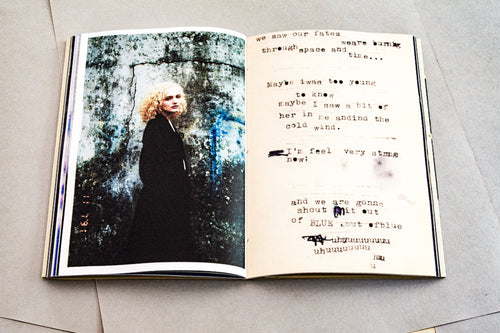 we saw our fates
weare burnbg
through space and
time...
Maybe iwas too young
to know
maybe I saw a bit of
her in me andind the
cold wind.
I'm feel very strnng
now!
and we are gonns
shout it out
of BLUE out ofblue
uhuuuuuuuu
uhuuuuuuuu
u